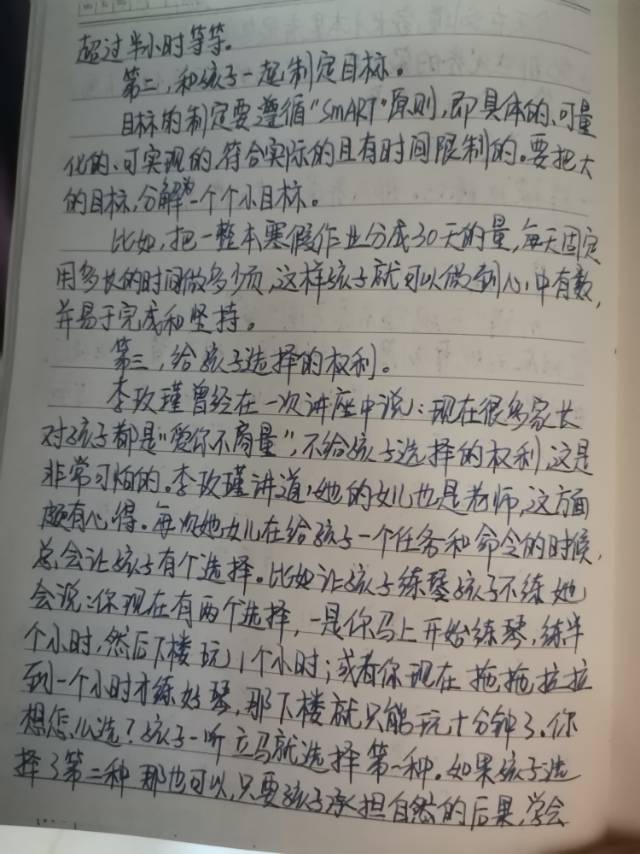 超过半小时等等。
第二,和孩子一起制定目标。
目标的制定要遵循"SmART"原则,即具体的、可量
化的、可实现的、符合实际的且有时间限制的。要把大
的目标,分解为一个个小目标。
比如,把一整本寒假作业分成30天的量,每天固定
用多长的时间做多少页,这样孩子就可以做到心中有数,
并易于完成和坚持。
第三,给孩子选择的权利。
李玫瑾曾经在一次讲座中说:现在很多家长
对孩子都是"爱你不商量",不给孩子选择的权利,这是
非常可怕的。李玫瑾讲道,她的女儿也是老师,这方面
颇有心得。每次她女儿在给孩子一个任务和命令的时候,
总会让孩子有个选择。比如让孩子练琴孩子不练她
会说:你现在有两个选择,一是你马上开始练琴,练半
个小时,然后下楼玩1个小时;或者你现在拖拖拉拉
到一个小时才练好琴,那下楼就只能玩十分钟了。你
想怎么选?孩子一听立马就选择第一种。如果孩子选
择了第二种那也可以,只要孩子承担自然的后果,学会